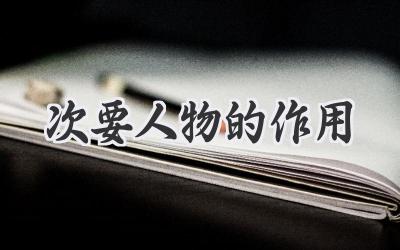 次要人物的作用